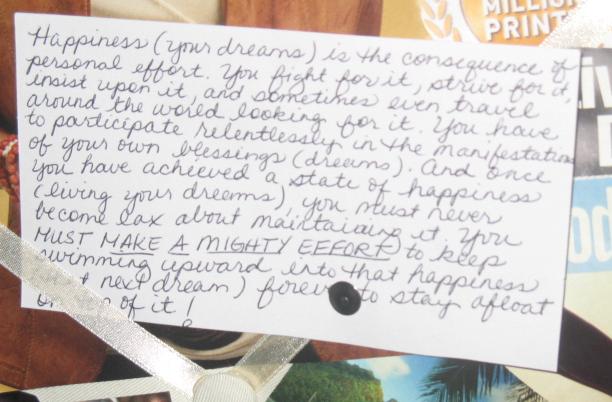 MILLION
PRINT
Happiness (your dreams) is the consequence of
personal effort. You fight for it, strive for it,
insist upon it, and sometimes even travel
around the world looking for it. You have
to participate relentlessly in the manifestation
of your own blessings (dreams). And once
you have achieved a state of happiness
(living your dreams), you must never
become lax about maintaining it. You
MUST MAKE A MIGHTY EFFORT to keep
swimming upward into that happiness
next dream) forever to stay afloat
of it!